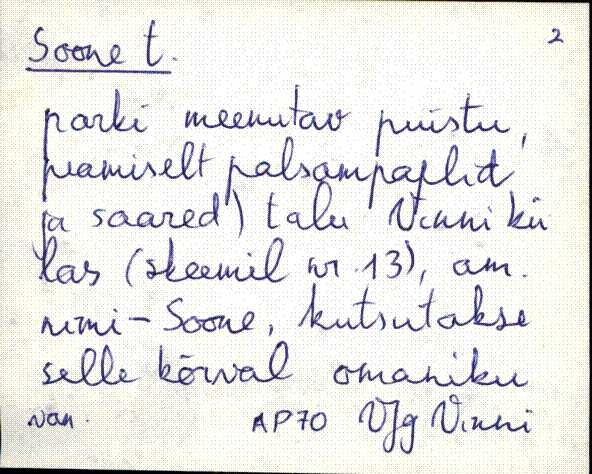 Soone t. 2
parki meenutav puistu,
peamiselt palsampaplid
ja saared) talu Vinni kü
las (skeemil nr. 13), am.
nimi - Soone, kutsutakse
selle kõrval omaniku
AP70 VJg Vinni